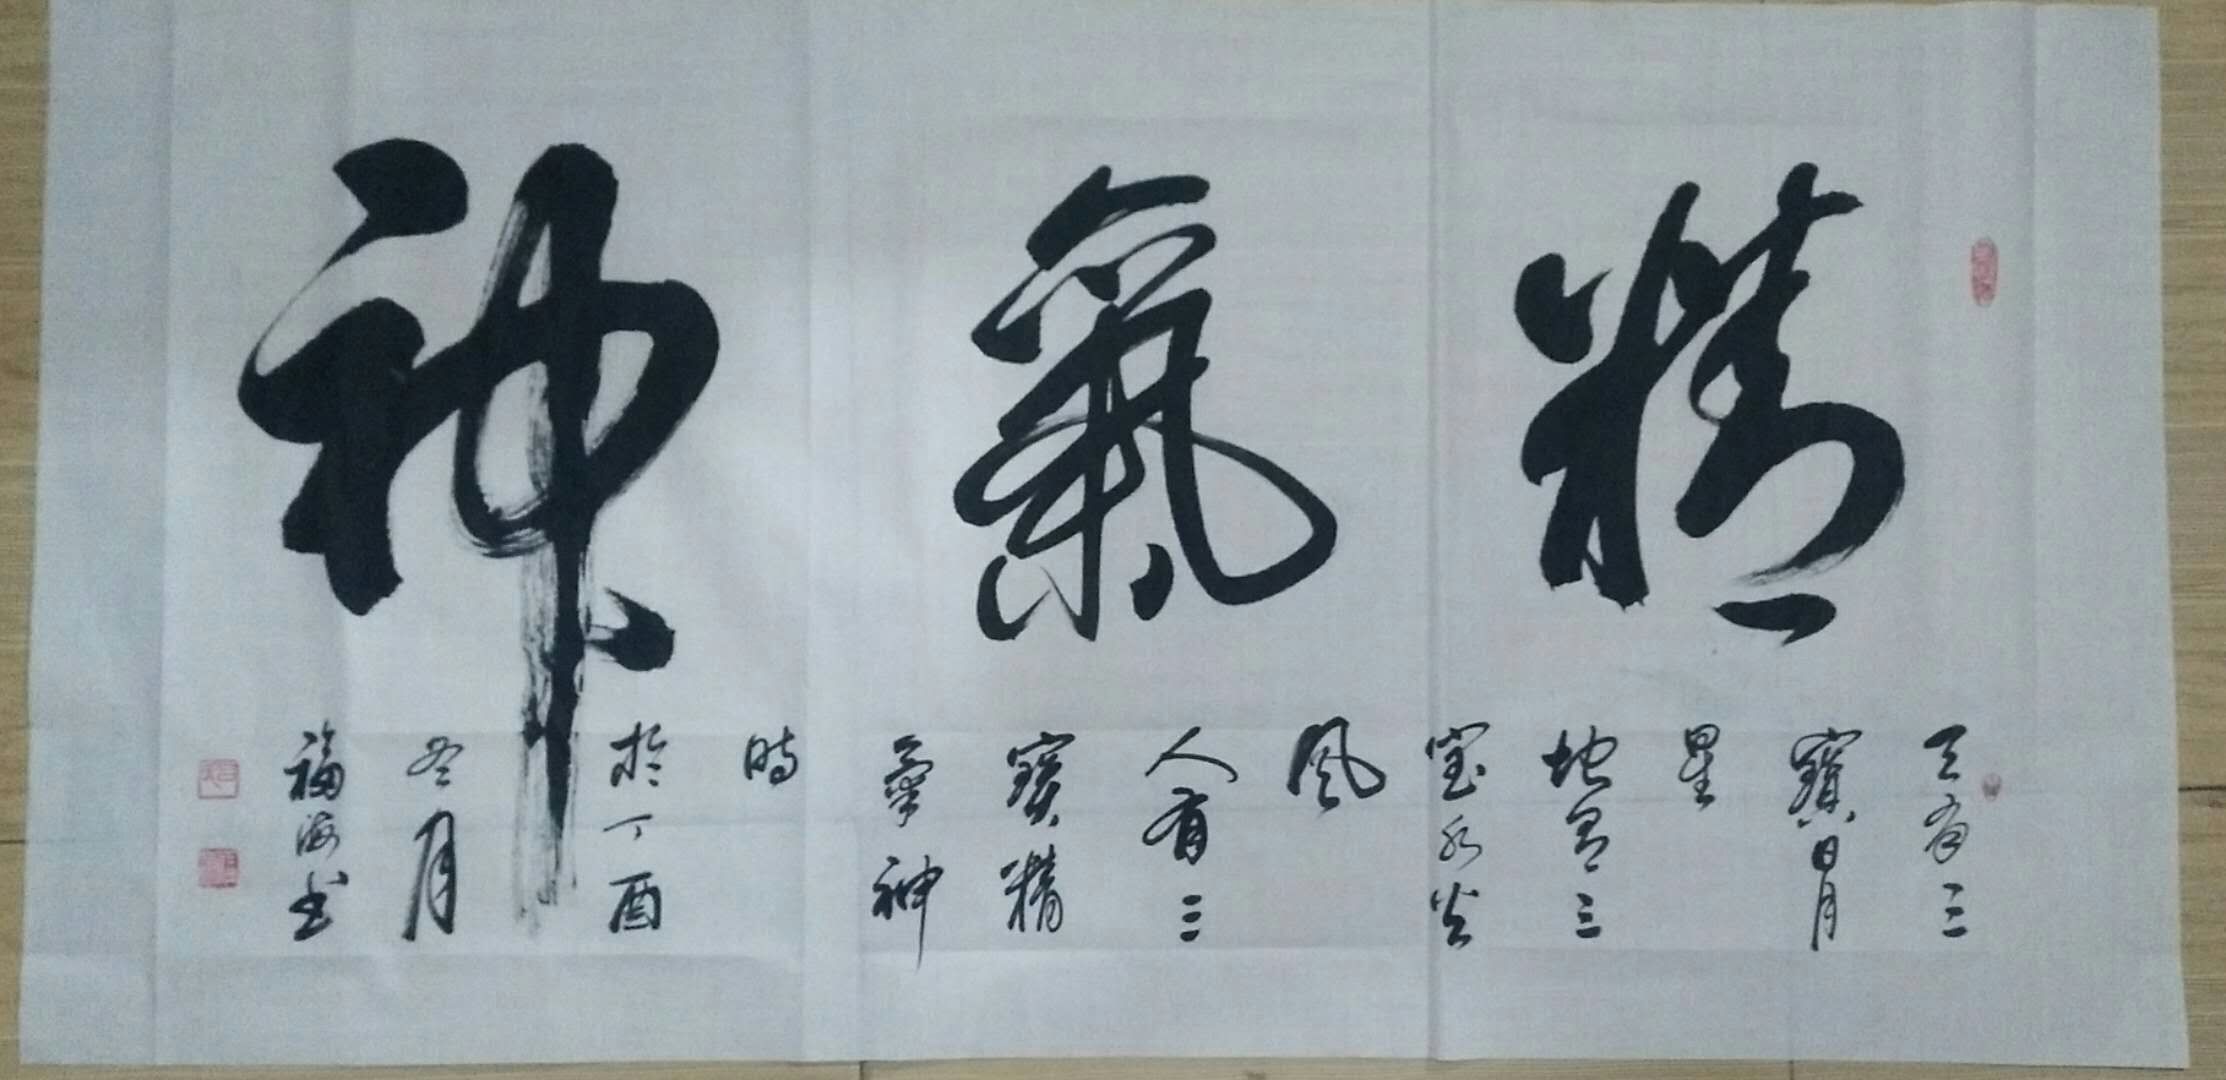 精氣神
天有三
寶日月
星
地有三
寳水火
風
人有三
寶精
氣神
時
於丁酉
冬月
福海书